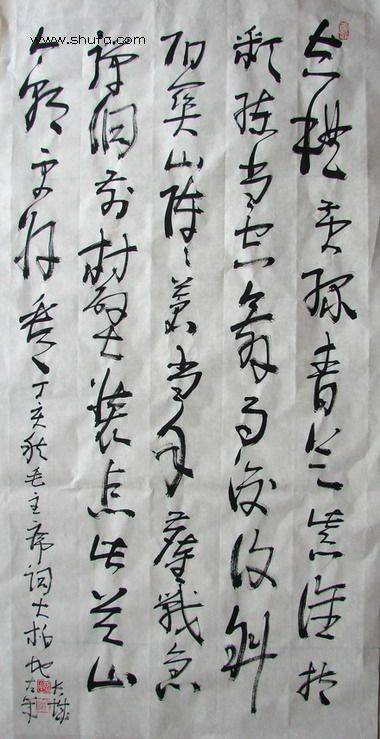 www.shufa.com
赤橙黄绿青蓝紫谁持
彩练当空舞雨后复斜
阳关山阵阵苍当年鏖战急
弹洞前村壁装点此关山
今朝更好看丁亥秋毛主席词大柏地